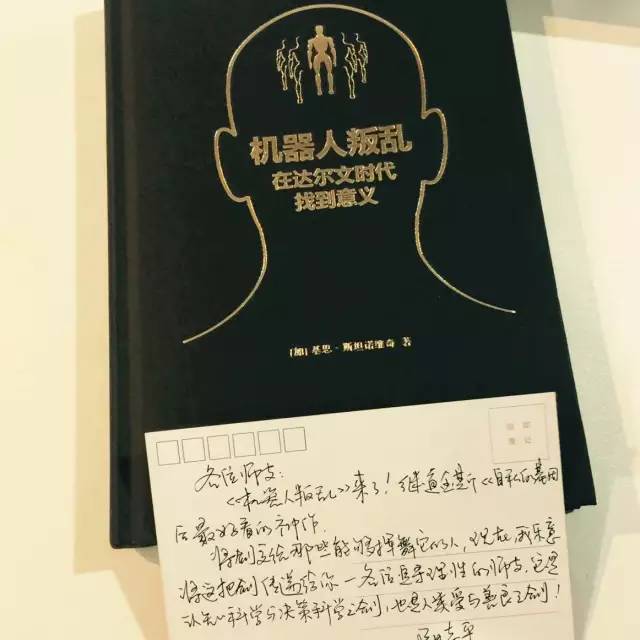 机器人叛乱
在达尔文时代
找到意义
[加] 基思·斯坦诺维奇 著
各位师友:
《机器人叛乱》来了!继道金斯《自私的基因》
后最好看的神作。
将剑交给那些能够挥舞它的人,现在,我乐意
将这把剑传递给你——各位追寻理性的师友,它是
认知科学与决策科学之剑,也是人类爱与善良之剑!